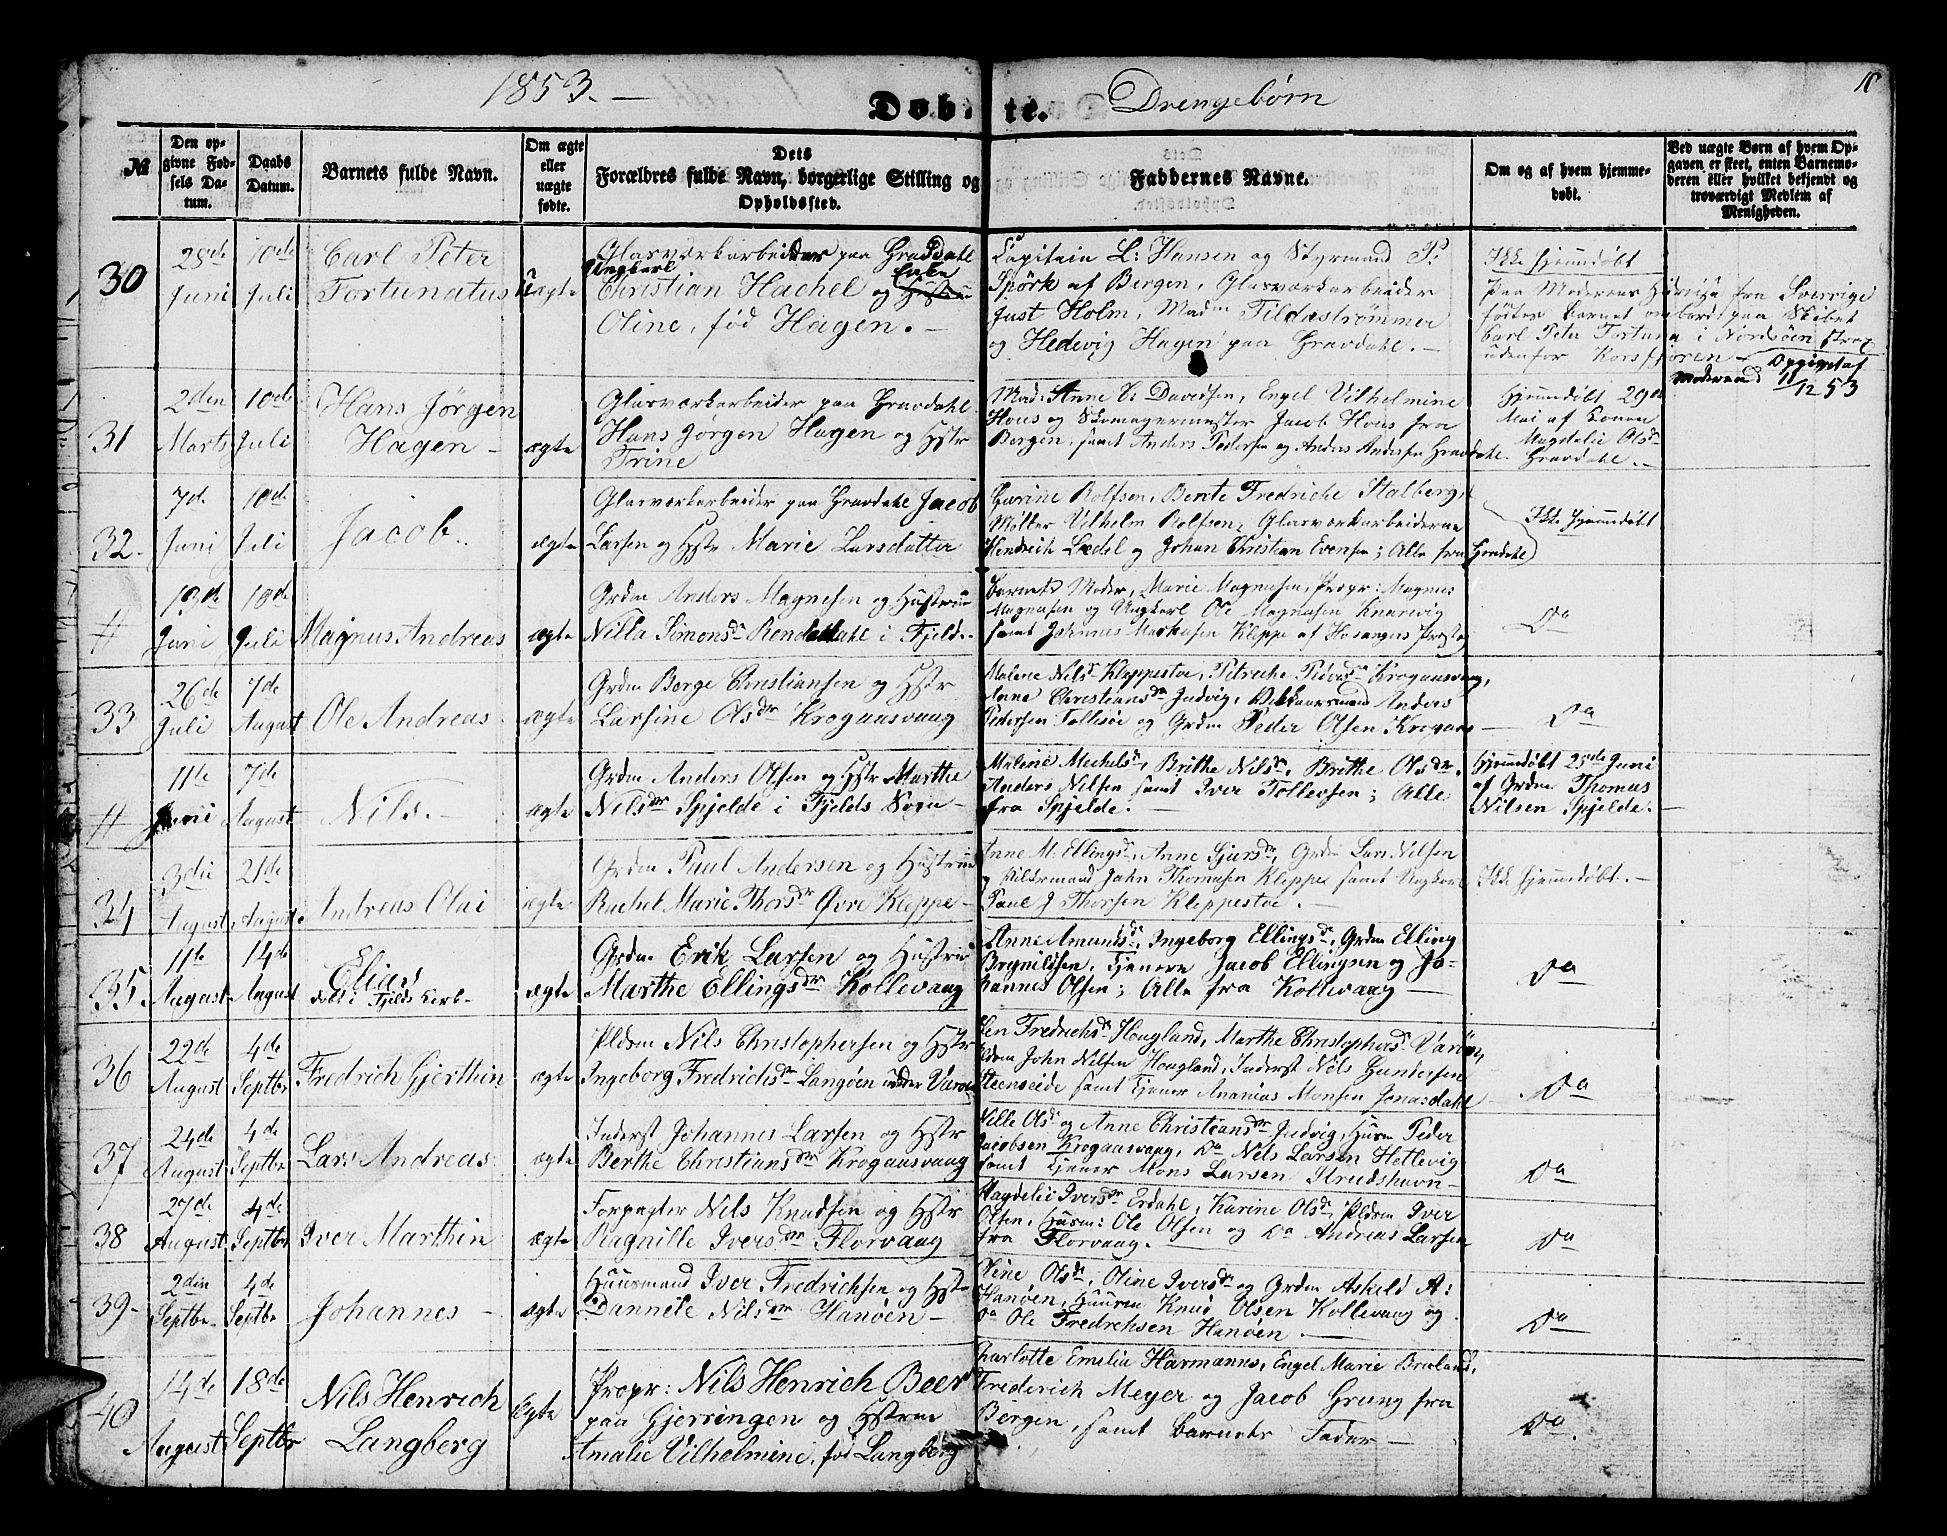 1853. —
Døbte.
Drengebørn
№
Den opgivne Fødsels Datum.
Daabs Datum.
Barnets fulde Navn.
Om ægte eller uægte fødte.
Dets Forældres fulde Navn, borgerlige Stilling og Opholdssted.
Faddernes Navne.
Om og af hvem hjemmedøbt.
Ved uægte Børn af hvem Opgaven er skeet, enten Barnemoderen eller hvilket bekjendt og troværdigt Medlem af Menigheden.
30
28de Juni
10de Juli
Carl Peter
Fortunatus
Uægte
Glasværkarbeider paa Gravdahl
Ungkarl
Christian Hachel og Enke
Oline, fød Hagen. —
Capitain L: Hansen og Styrmand P:
Spörk af Bergen, Glasværkarbeider
Just Holm, Madm Tilda Strömmer
og Hedevig Hagen paa Gravdahl. —
Ikke hjemmedøbt
Paa Moderens Hjemreise fra Sverrige
fødtes Barnet ombord paa Skibet
Carl Peter Fortuna i Nordsøen strax
udenfor Korsfjoren —
Opgivet af
Moderen 11/12 53
31
2den Marts
10de Juli
Hans Jörgen
Hagen —
ægte
Glasværkarbeider paa Gravdahl
Hans Jorgen Hagen og Hstr
Trine
Mad: Anne C: Davidsen, Engel Vilhelmine
Hous og Skomagermester Jacob Hous fra
Bergen, samt Anders Pedersen og Anders Andersen Gravdahl.
Hjemmedøbt 29de
Mai af Konen
Magdalie Olsdr
Gravdahl. —
32.
7de Juni
10de Juli
Jacob.
ægte
Glasværkarbeider paa Gravdahl Jacob
Larsen og Hstr Marie Larsdatter
Gurine Rolfsen, Bente Fredriche Stalberg,
Møller Vilhelm Rolfsen, Glasværkarbeiderne
Hendrich Lædel og Johan Christian Evensen; Alle fra Gravdahl
Ikke hjemmedøbt
//
19de Juni
10de Juli
Magnus Andreas
ægte
Grdm Anders Magnesen og Hustrue
Nilla Simonsdr Rendedahl i Fjeld.
Barnets Moder, Marie Magnesen, Propr: Magnus
Magnesen og Ungkarl Ole Magnesen Knarrvig
samt Johannes Markusen Kleppe af Hosangers Prestg
Do
33
26de Juli
7de August
Ole Andreas.
ægte
Grdm Borge Christiansen og Hstr
Larsine Olsdr Krogaasvaag
Malene Nilsdr Kleppestøe, Krogaasvaag,
Anne Christiansdr Judvig, Anders
Pedersen og Grdm Peder Olsen Krogaas
Do
//
11te Juni
7de August
Nils. —
ægte
Grdm Anders Olsen og Hstr Marthe
Nilsdr Spjelde i Fjelds Sogn —
Malene Michelsdr, Brithe Nilsdr, Brithe Olsdr.
Anders Nilsen samt Iver Tollevsen; Alle
fra Spjelde. —
Hjemmedøbt 25de Juni
af Grdm Thomas
Nilsen Spjelde. —
34
3die August
21de August
Andreas Olai
ægte
Grdm Paul Andersen og Hustrue
Rachel Marie Thorsdr Øvre Kleppe —
Anne M: Ellingsdr, Anne Sjursdr, Grdm Lars Nilsen
og Pildsmand John Thomasen Kleppe samt Ungkarl
Paul J Thorsen Kleppestøe. —
Ikke hjemmedøbt. —
35
11te August
14de August
Elias
døbt i Fjelds Kirke
ægte
Grdm Erik Larsen og Hustrue
Marthe Ellingsdr Kollevaag
Anne Amundsdr, Ingeborg Ellingsdr, Grdm Elling
Brynildsen, Tjenere Jacob Ellingsen og Jo-
hannes Olsen; Alle fra Kollevaag —
Do
36
22de August
4de Septbr
Fredrich Gjerthin
ægte
Pldsm Nils Christophersen og Hstr
Ingeborg Fredrichsdr Langöen under Varöen
Fredrichsdr Hougland, Marthe Christophersdr Varöen,
Pldsm John Nilsen Hougland, Inderst Nils Gundersen
Steenseide samt Tjener Ananias Monsen Jonasdahl
Do
37
24de August
4de Septbr
Lars Andreas
ægte
Inderst Johannes Larsen og Hstr
Berthe Christiansdr Krogaasvaag
Nille Olsdr og Anne Christiansdr Judvig, Husm Peder
Jacobsen Krogaasvaag, Do Nils Larsen Hetlevig
samt Tjener Mons Larsen Strudshavn —
Do
38
27de August
4de Septbr
Iver Marthin
ægte
Forpagter Nils Knudsen og Hstr
Ragnille Iversdr Florvaag
Magdelie Iversdr Erdahl, Karine Olsdr, Pldsm Iver
Olsen, Husm: Ole Olsen og Do Andreas Larsen
fra Florvaag. —
Do
39.
2den Septbr.
4de Septbr
Johannes —
ægte
Huusmand Iver Fredrichsen og Hstr
Dannele Nilsdr Hanöen —
Stine Olsdr, Oline Iversdr og Grdm Askeld A:
Hanöen, Huusm Knud Olsen Kollevaag og
Do Ole Fredrichsen Hanöen. —
Do
40
14de August
18de Septbr
Nils Henrich
Langberg
Ægte
Propr: Nils Henrich Beer
paa Gjerringen og Hstrue
Amalie Vilhelmine, fød Langberg
Charlotte Emilia Harmanns, Engel Marie Breland,
Frederich Meyer og Jacob Grung fra
Bergen, samt Barnets Fader —
Do.